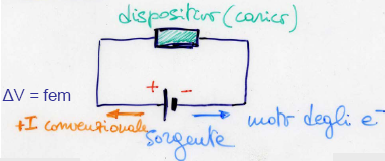 dispositivo (carico)
+ -
ΔV = fem
+I convenzionale
sorgente
moto degli e⁻